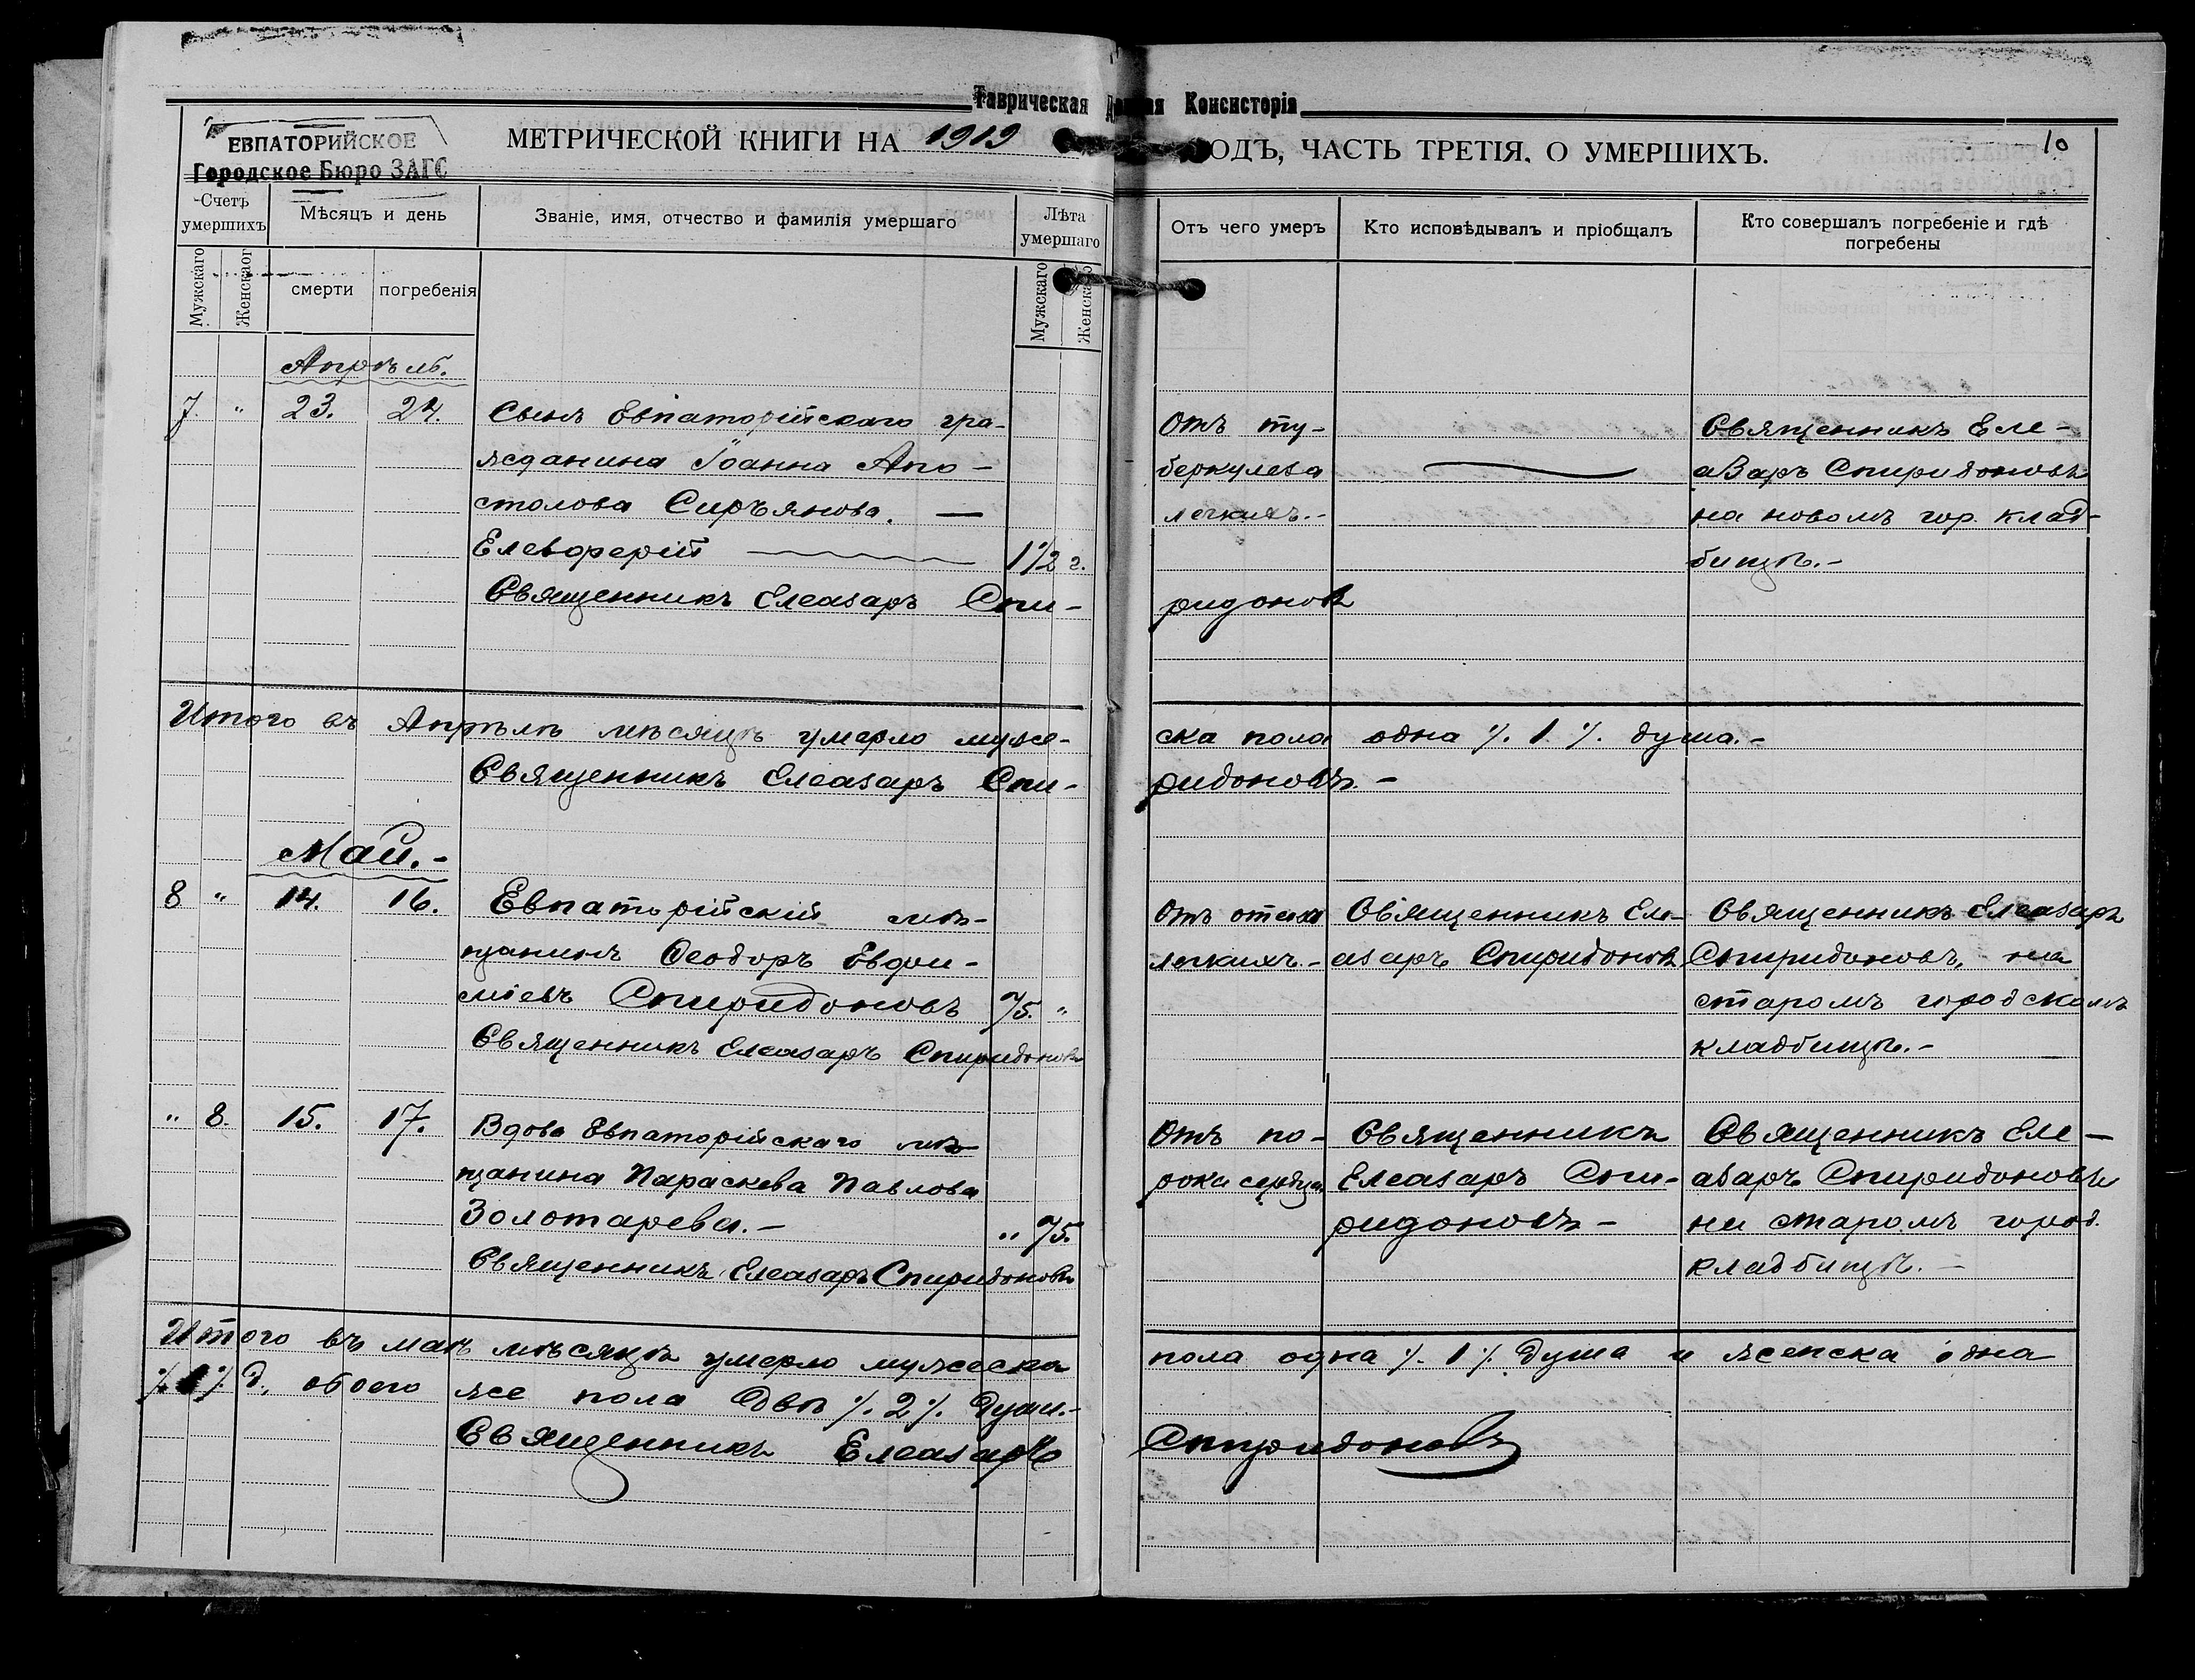 Таврическая Консисторія
ЕВПАТОРИЙСКОЕ
Городское Бюро ЗАГС
МЕТРИЧЕСКОЙ КНИГИ НА 1919
ОДЪ, ЧАСТЬ ТРЕТІЯ, О УМЕРШИХЪ.
10
Счетъ умершихъ
Мѣсяцъ и день
Званіе, имя, отчество и фамилія умершаго
Лѣта умершаго
Отъ чего умеръ
Кто исповѣдывалъ и пріобщалъ
Кто совершалъ погребеніе и гдѣ
погребены
Мужскаго
Женскаог
смерти
погребенія
Мужскаго
Женскаго
Апрѣль.
7. " 23. 24. Сынъ Евпаторійскаго гра-
жданина Іоанна Апо-
столова Сиръянова. —
Елевферій 1 1/2 г.
Священникъ Елеазаръ Спи-
ридоновъ
Отъ ту-
беркулеза
легкихъ.-
Священникъ Еле-
азаръ Спиридоновъ
на новомъ гор. клад-
бищѣ.-
Итого въ Апрѣлѣ мѣсяцѣ умерло муже-
ска пола одна ·/. 1 ·/. душа.-
Священникъ Елеазаръ Спи-
ридоновъ.-
Май.-
8 " 14. 16. Евпаторійскій мѣ-
щанинъ Ѳеодоръ Евфи-
міевъ Спиридоновъ 75. "
Священникъ Елеазаръ Спиридоновъ
Отъ отека
легкихъ.-
Священникъ Еле-
азаръ Спиридоновъ
Священникъ Елеазаръ
Спиридоновъ, на
старомъ городскомъ
кладбищѣ.-
" 8. 15. 17. Вдова Евпаторійскаго мѣ-
щанина Параскева Павлова
Золотарева.- " 75.
Священникъ Елеазаръ Спиридоновъ
Отъ по-
рока сердца
Священникъ
Елеазаръ Спи-
ридоновъ-
Священникъ Еле-
азаръ Спиридоновъ
на старомъ город.
кладбищѣ.-
Итого въ маѣ мѣсяцѣ умерло мужеска
пола одна ·/. 1 ·/. душа и женска одна
·/. 1 ·/. д., обоего же пола двѣ ·/. 2 ·/. души.-
Священникъ Елеазаръ
Спиридоновъ